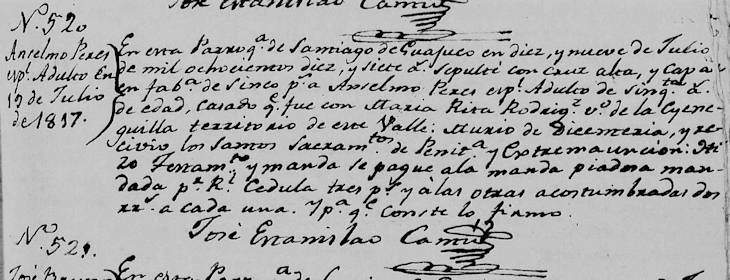 José Estanislao Camu
N.º 520
Anselmo Peres
esp.l Adulto En
19 de Julio
de 1817.
En esta Parroq.a de Santiago de Guajuco en diez, y nueve de Julio
de mil ochocientos diez, y siete a.s sepulté con Cruz alta, y Capa
en fab.a de Sinco p.s a Anselmo Peres esp.l Adulto de Sinq.ta a.s
de edad, casado q.e fue con Maria Rita Rodrig.z v.o de la Cyene-
guilla territorio de este Valle; Murio de Dicenteria, y re-
civio los Santos Sacram.tos de Penit.a y Extremauncion: Hi-
zo Testam.to y manda se pague a la manda piadosa man-
dada p.r R.l Cedula tres p.s y a las otras acostumbradas dos
rr.s a cada una. Y p.a q.e Conste lo firmo.
José Estanislao Camu
N.º 521.
José
En esta Parr.a de